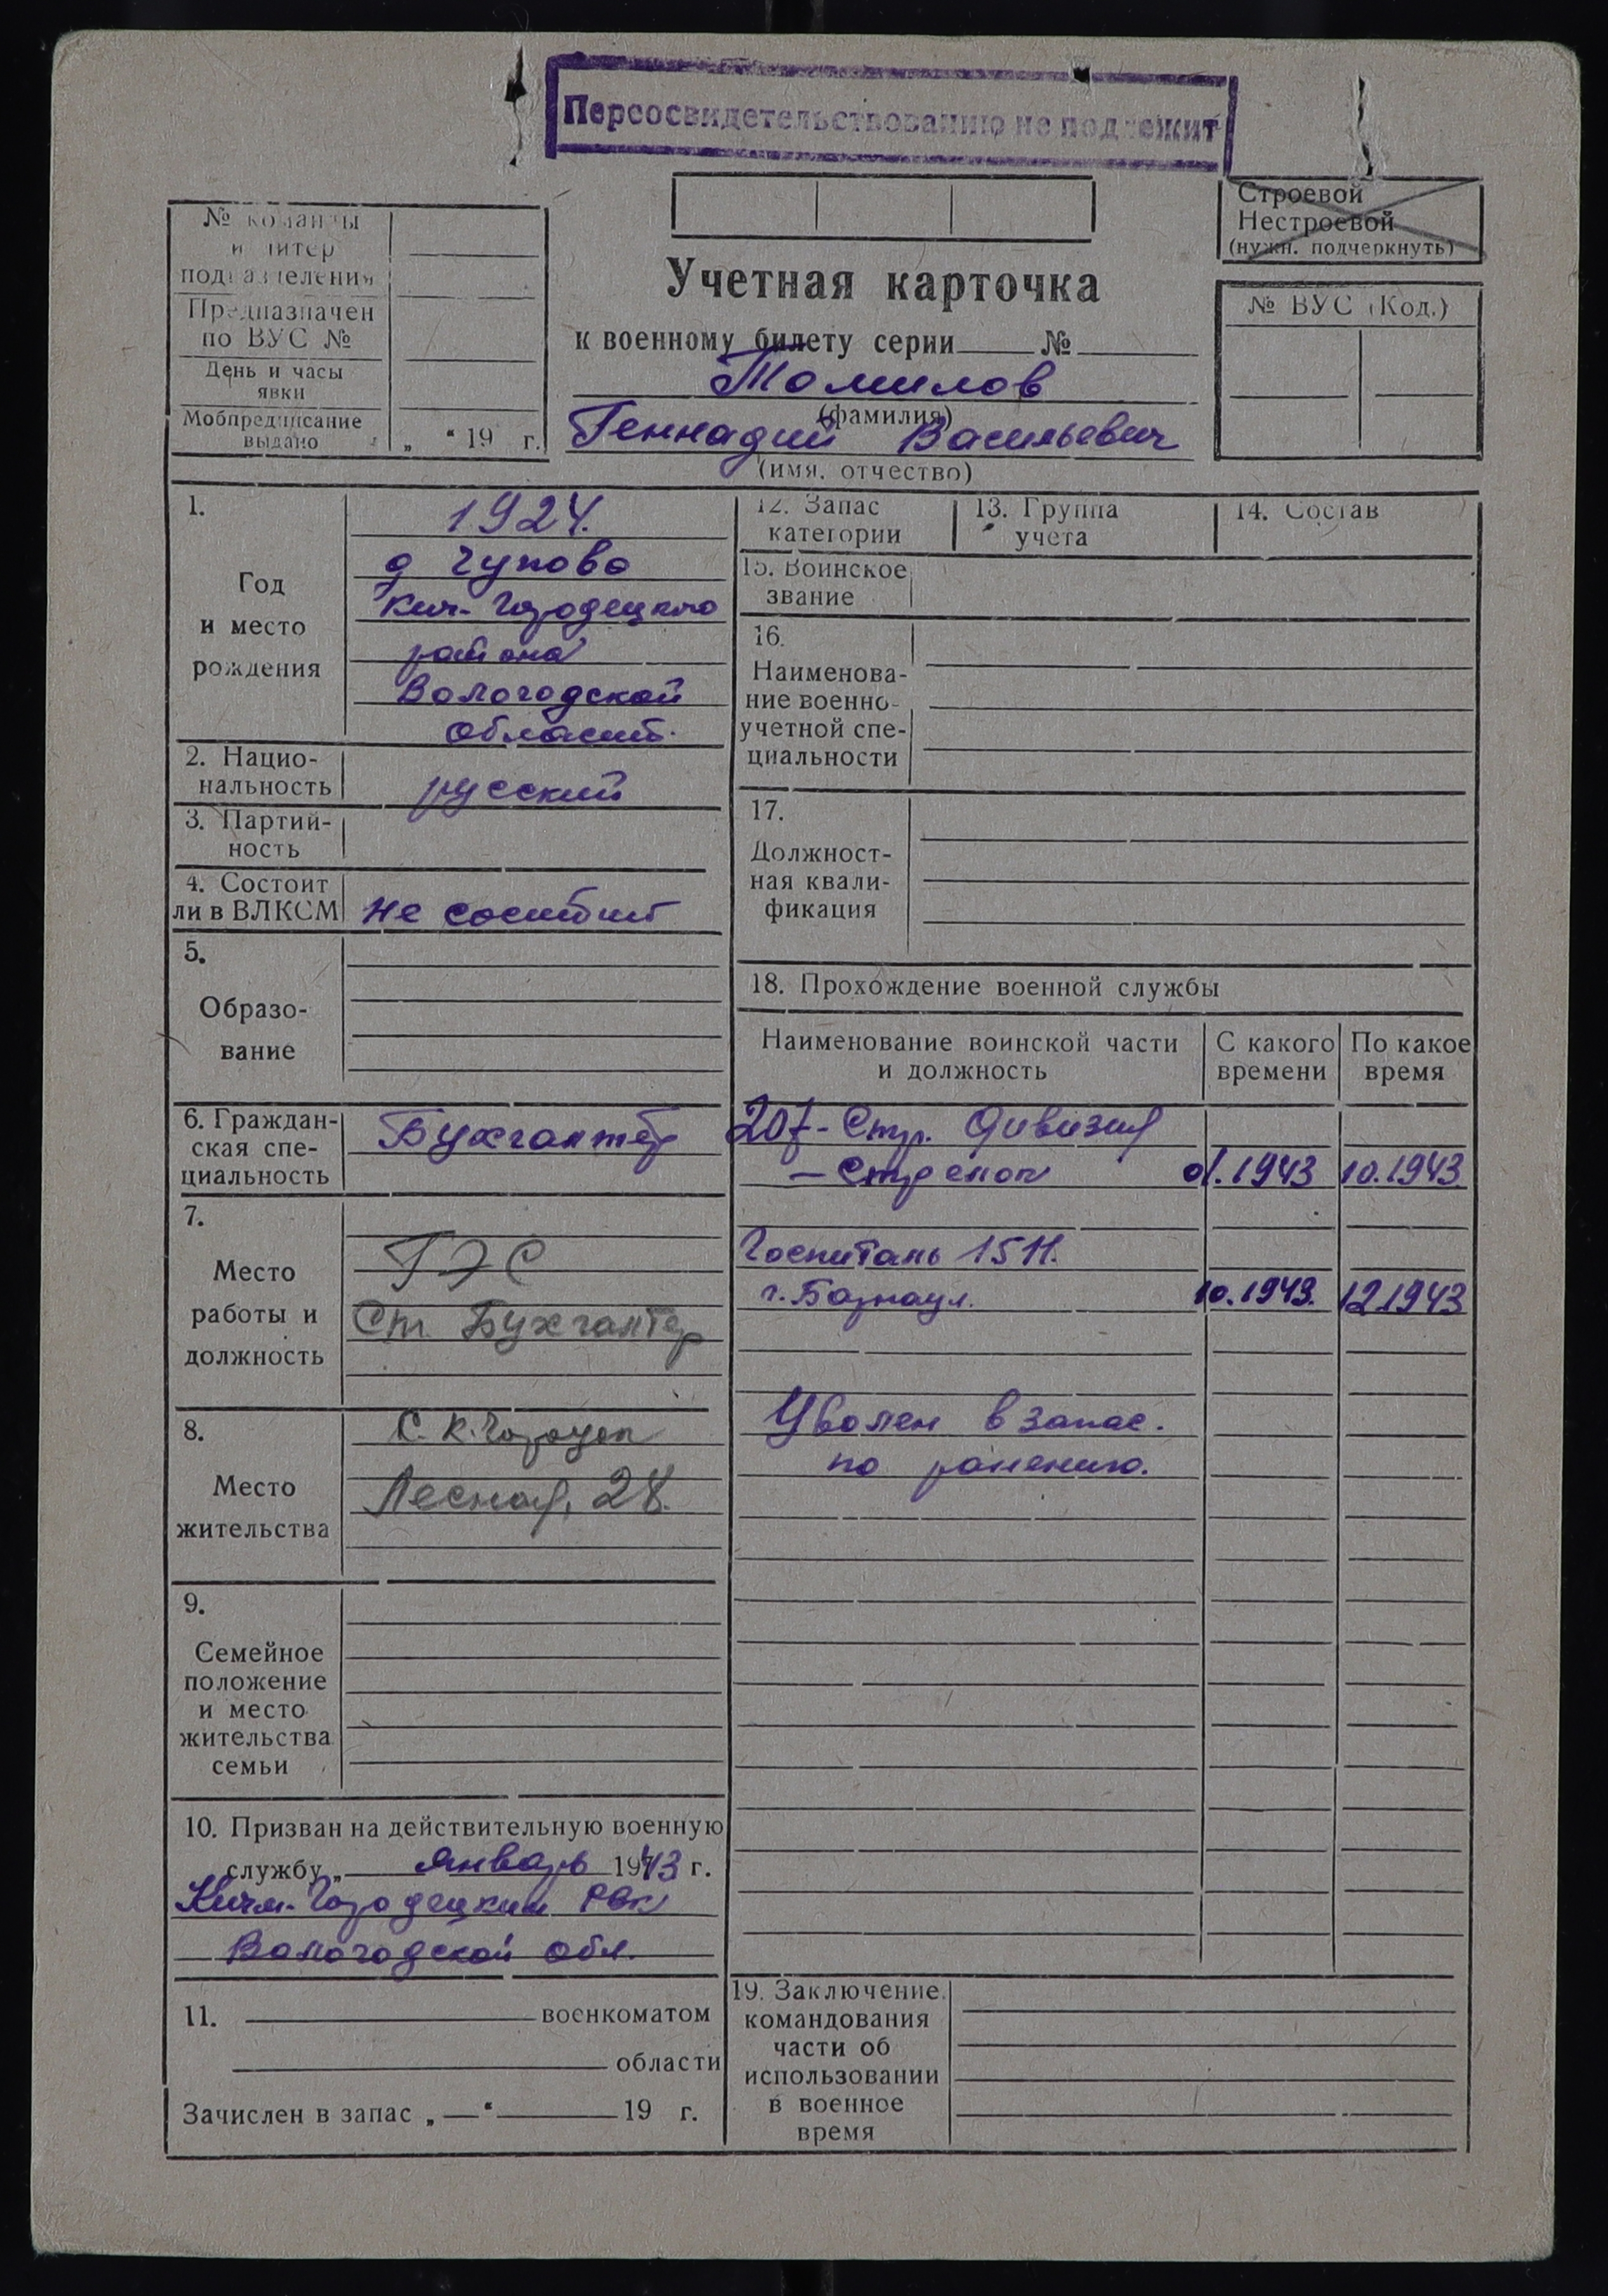 Переосвидетельствованию не подлежит
Строевой
Нестроевой
(нужн. подчеркнуть)
№ команды
и литер
подразделения
Предназначен
по ВУС №
День и часы
явки
Мобпредписание
выдано „ “ 19 г.
Учетная карточка
к военному билету серии №
Томилов
(фамилия)
Геннадий Васильевич
(имя, отчество)
№ ВУС (Код.)
1.
Год
и место
рождения
1924.
д Чупово
Кич-Городецкого
района
Вологодской
област.
2. Нацио-
нальность
русский
3. Партий-
ность
4. Состоит
ли в ВЛКСМ
не состоит
5.
Образо-
вание
6. Граждан-
ская спе-
циальность
Бухгалтер
7.
Место
работы и
должность
ГЭС
Ст. Бухгалтер
8.
Место
жительства
С. К. Городок
Лесная, 28.
9.
Семейное
положение
и место
жительства
семьи
10. Призван на действительную военную
службу „ Январь 1943 г.
Кичм-Городецким РВК
Вологодской обл.
11. военкоматом
области
Зачислен в запас „ “ 19 г.
12. Запас
категории
13. Группа
учета
14. Состав
15. Воинское
звание
16.
Наименова-
ние военно-
учетной спе-
циальности
17.
Должност-
ная квали-
фикация
18. Прохождение военной службы
Наименование воинской части
и должность
С какого
времени
По какое
время
207-Стр. Дивизия
- Стрелок 01.1943 10.1943
Госпиталь 1511.
г. Барнаул. 10.1943. 12.1943
Уволен в запас.
по ранению.
19. Заключение
командования
части об
использовании
в военное
время